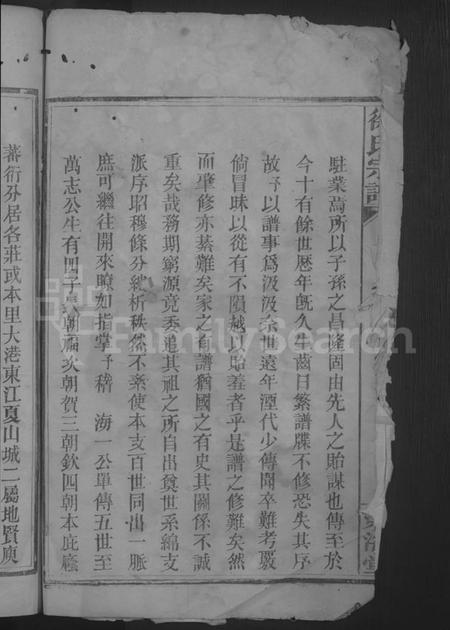 徐氏宗譜
駐業萬所以子孫之昌隆固由先人之貽謀也傳至於
今十有餘世歷年旣久生齒日繁譜牒不修恐失其序
故予以譜事爲汲汲奈世遠年湮代少傳聞卒難考覈
倘冒昧以從有不隕越以貽羞者乎是譜之修難矣然
而肇修亦綦難矣家之有譜猶國之有史其關係不誠
重矣哉務期窮源竟委追其祖之所自出奠世系綿支
派序昭穆條分縷析秩然不紊使本支百世同出一脈
庶可繼往開來瞭如指掌予稽 海一公單傳五世至
萬志公生有四子長朝瑞次朝賀三朝欽四朝本庶廕
蕃衍分居各莊或本里大港東江夏山城二屬地賢庾
FamilySearch